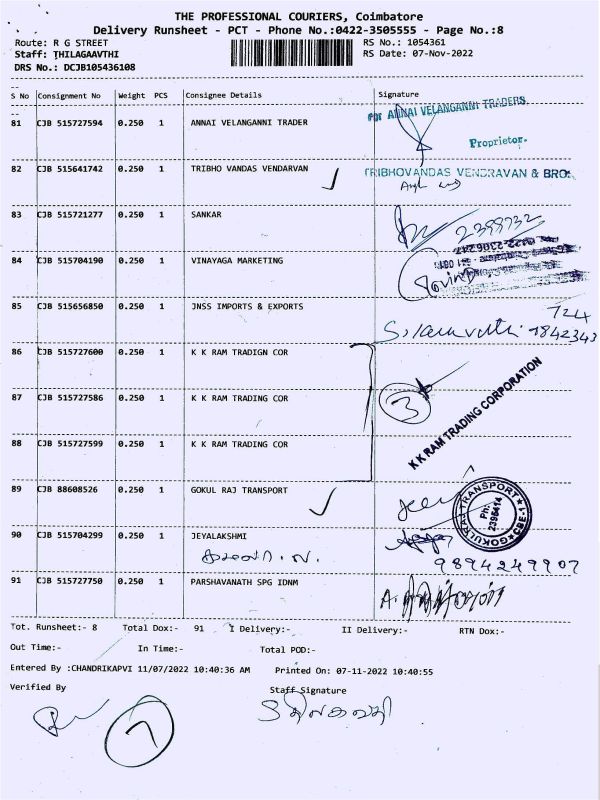 THE PROFESSIONAL COURIERS, Coimbatore
Delivery Runsheet - PCT - Phone No.:0422-3505555 - Page No.:8
Route: R G STREET RS No.: 1054361
Staff: THILAGAAVTHI RS Date: 07-Nov-2022
DRS No.: DCJB105436108
S No Consignment No Weight PCS Consignee Details Signature
81 CJB 515727594 0.250 1 ANNAI VELANGANNI TRADER
For ANNAI VELANGANNI TRADERS
Proprietor.
82 CJB 515641742 0.250 1 TRIBHO VANDAS VENDARVAN
TRIBHOVANDAS VENDRAVAN & BRO.
83 CJB 515721277 0.250 1 SANKAR
2399732
84 CJB 515704190 0.250 1 VINAYAGA MARKETING
Govind
85 CJB 515656850 0.250 1 JNSS IMPORTS & EXPORTS
724
9842343
86 CJB 515727600 0.250 1 K K RAM TRADIGN COR
87 CJB 515727586 0.250 1 K K RAM TRADING COR
3
K K RAM TRADING CORPORATION
88 CJB 515727599 0.250 1 K K RAM TRADING COR
89 CJB 88608526 0.250 1 GOKUL RAJ TRANSPORT
GOKULRAJ TRANSPORT
Ph: 2395414
CBE-1
90 CJB 515704299 0.250 1 JEYALAKSHMI
9894249907
91 CJB 515727750 0.250 1 PARSHAVANATH SPG IDNM
Tot. Runsheet:- 8 Total Dox:- 91 I Delivery:- II Delivery:- RTN Dox:-
Out Time:- In Time:- Total POD:-
Entered By :CHANDRIKAPVI 11/07/2022 10:40:36 AM Printed On: 07-11-2022 10:40:55
Verified By Staff Signature
7